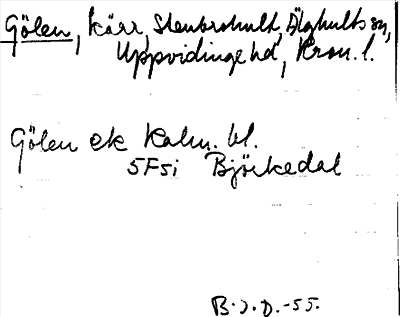 Gölen, kärr, Stenbrohult, Älghults sn,
Uppvidinge hd, Kron. l.
Gölen ek Kalm. bl.
5F5i Björkedal
B.J.D.-55.